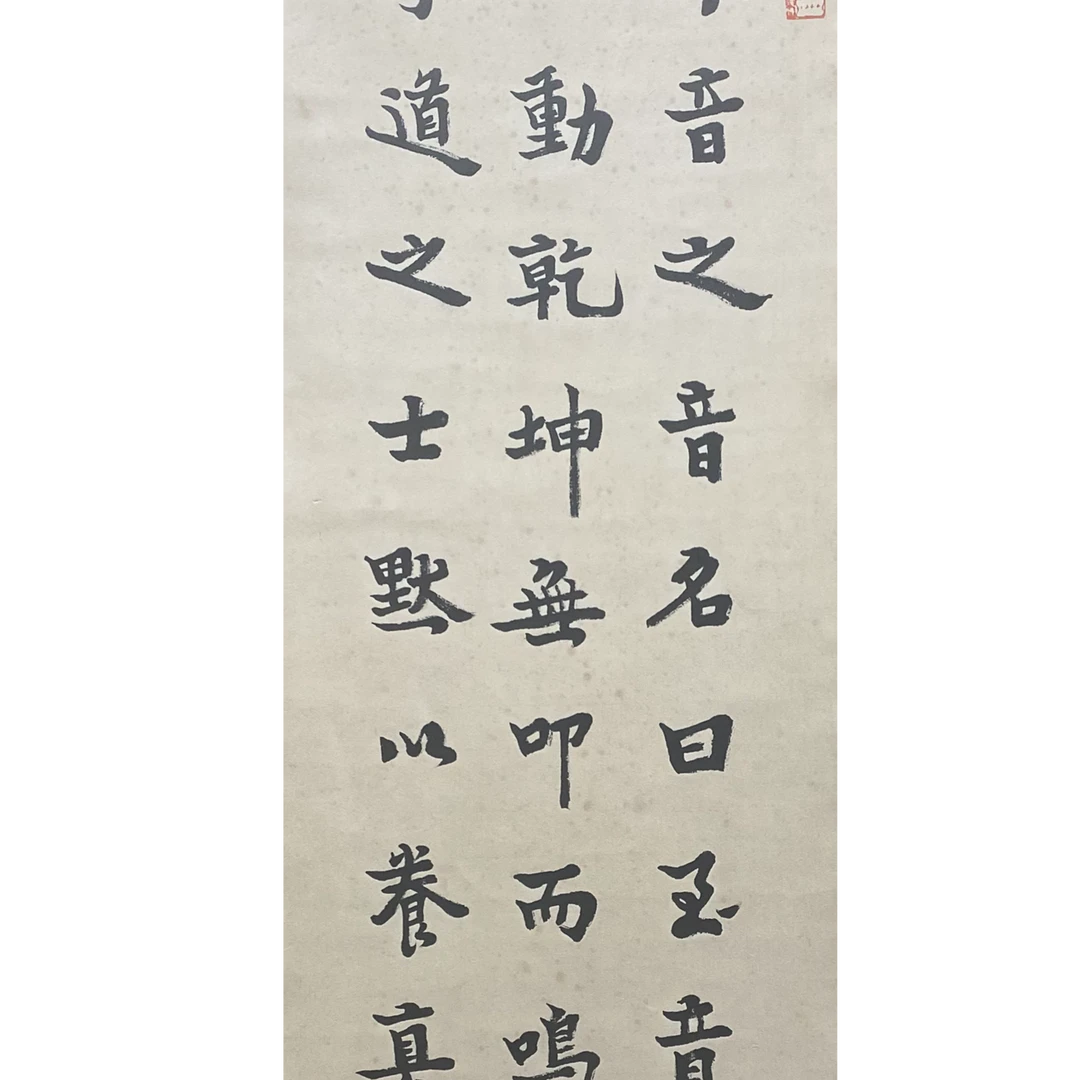 音之音名曰至音
動乾坤無叩而鳴
道之士默以養真